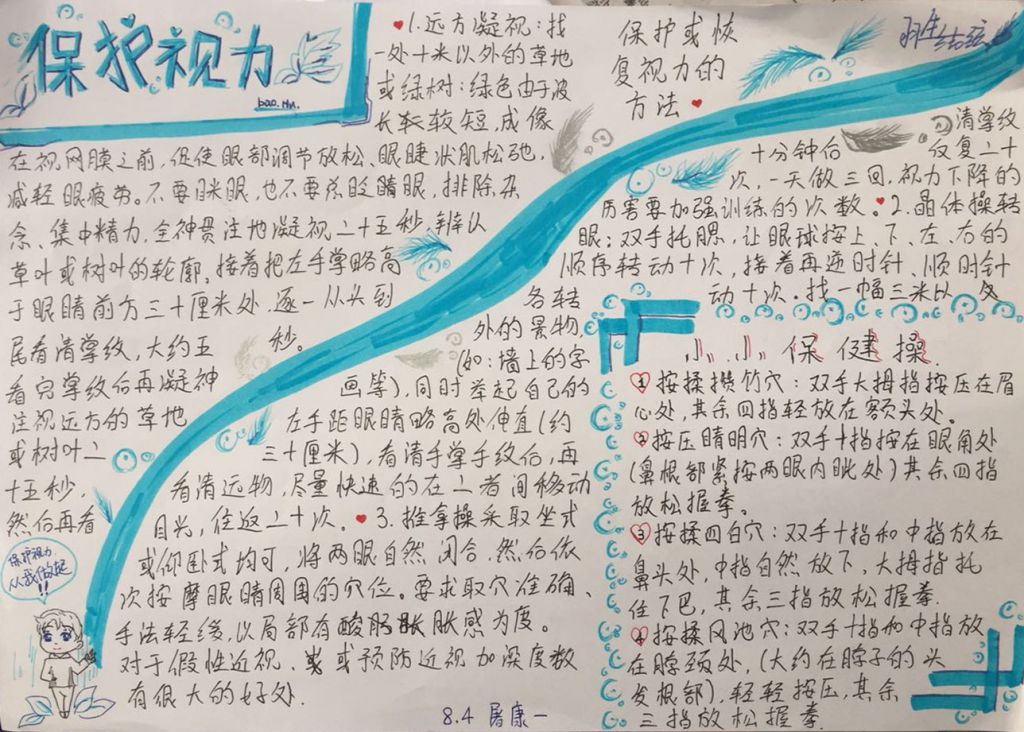 保护视力
bao.Hu.
保护或恢
复视力的
方法
1.远方凝视：找
一处十米以外的草地
或绿树：绿色由于波
长较短，成像
在视网膜之前，促使眼部调节放松、眼睫状肌松弛，
减轻眼疲劳。不要眯眼，也不要总眨睛眼，排除杂
念、集中精力，全神贯注地凝视二十五秒，辨认
草叶或树叶的轮廓。接着把左手掌略高
于眼睛前方三十厘米处，逐一从头到
尾看清掌纹，大约五
秒。
看完掌纹后再凝神
注视远方的草地
或树叶二
十五秒，
然后再看
清掌纹
十分钟后
反复二十
次，一天做三回，视力下降的
厉害要加强训练的次数。2.晶体操转
眼：双手托腮，让眼球按上、下、左、右的
顺序转动十次，接着再逆时针、顺时针
各转
动十次。找一幅三米以
处
外的景物，
(如：墙上的字
画等)，同时举起自己的
左手距眼睛略高处伸直(约
三十厘米)，看清手掌手纹后，再
看清远物，尽量快速的在二者间移动
目光，往返二十次。3.推拿操采取坐式
或仰卧式均可，将两眼自然闭合，然后依
次按摩眼睛周围的穴位。要求取穴准确、
手法轻缓，以局部有酸胀感为度。
对于假性近视、或预防近视加深度数
有很大的好处.
保护视力.
从我做起
!!
8.4 屠康一
小小保健操
①按揉攒竹穴：双手大拇指按压在眉
心处，其余四指轻放在额头处。
②按压睛明穴：双手十指按在眼角处
(鼻根部紧按两眼内眦处)其余四指
放松握拳。
③按揉四白穴：双手十指和中指放在
鼻头处，中指自然放下，大拇指托
住下巴，其余三指放松握拳.
④按揉风池穴：双手十指和中指放
在脖颈处，(大约在脖子的头
发根部)，轻轻按压，其余
三指放松握拳.